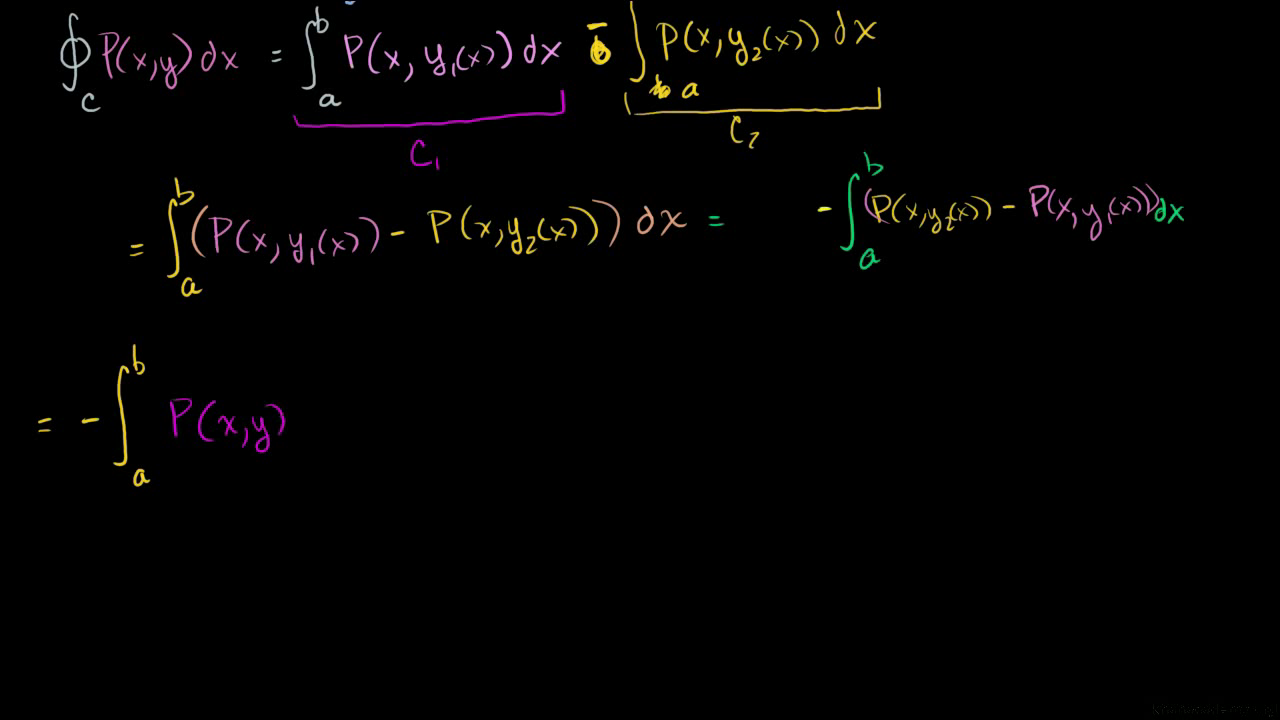 ∮_C P(x,y)dx = ∫_a^b P(x, y₁(x))dx - ∫_a P(x,y₂(x)) dx
C₁ C₂
= ∫_a^b (P(x,y₁(x)) - P(x,y₂(x))) dx = - ∫_a^b (P(x,y₂(x)) - P(x,y₁(x)))dx
= - ∫_a^b P(x,y)